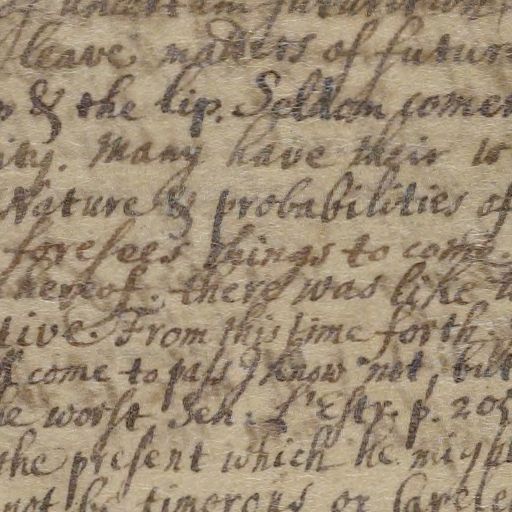 leave matters of futur
& the lip. Seldom comes
ity. Many have their
Nature & probabilities of
foresees things to come.
thereof. there was like
tive. From this time forth
come to pass I know not, but
he worst Sen. L'Estr. p. 205
the present which he might
not be timorous or careles